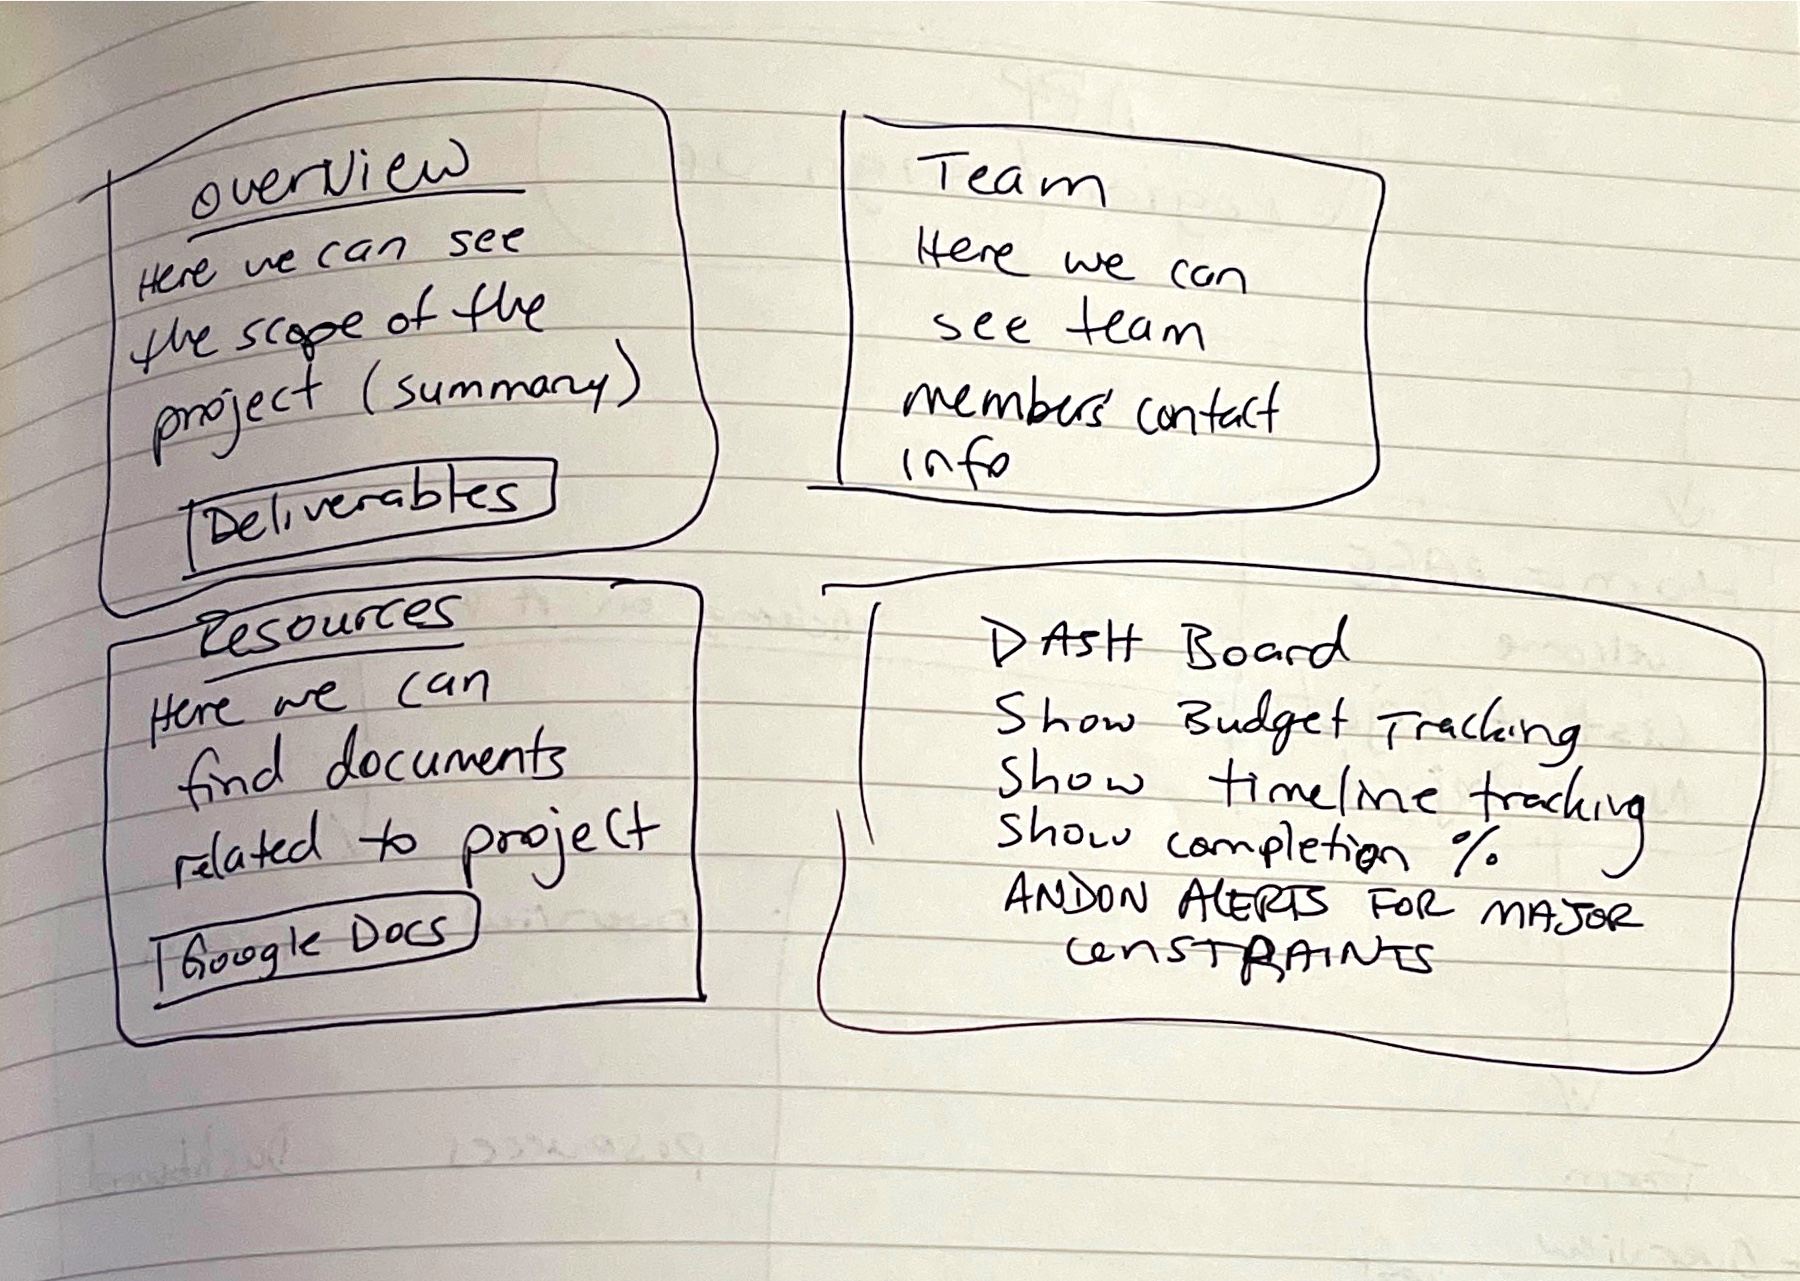 overview
Here we can see
the scope of the
project (summary)
Deliverables
Team
Here we can
see team
members' contact
info
Resources
Here we can
find documents
related to project
Google Docs
DASH Board
Show Budget Tracking
Show timeline tracking
Show completion %
ANDON ALERTS FOR MAJOR
CONSTRAINTS